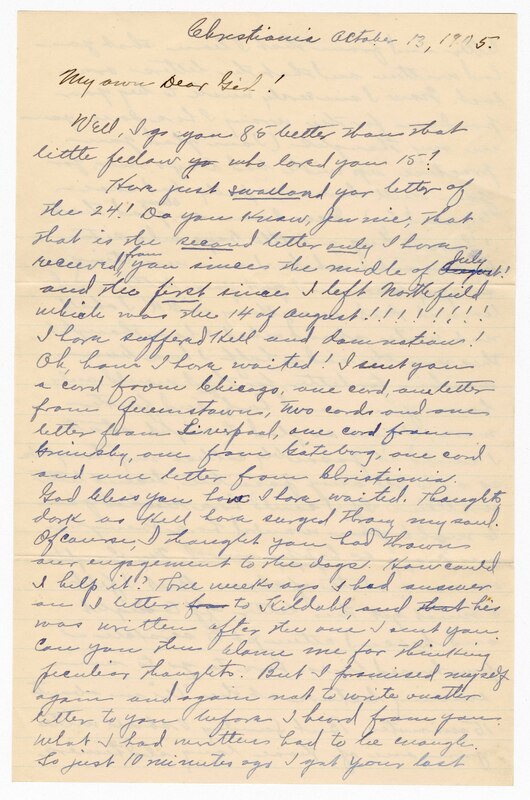 Christiania October 13, 1905.
My own Dear Girl!
Well, I go you 85 better than that
little feelaw who loved you 15!
Have just swallowed yor letter of
the 24! Do you know, Jennie, that
that is the second letter only I have
received from you sinces the middle of August July!
and the first since I left Northfield
which was the 14 of August!!!!!!!!
I have suffered Hell and damnations!
Oh, how I have waited! I sent you
a card from Chicago, one card, one letter
from Queenstown, two cards and one
letter from Liverpool, one card from
Grimsby, one from Göteborg, one card
and one letter from Christiania.
God bless you how I have waited. Thoughts
dark as Hell have surged throug my soul.
Of course, I thought you had thrown
our engagement to the dogs. How could
I help it? Three weeks ago I had answer
on I letter from to Kildahl, and that his
was written after the one I sent you.
Can you then blame me for thinking
peculiar thoughts. But I promised myself
again and again not to write another
letter to you before I heard from you.
What I had written had to be enough.
So just 10 minutes ago I got your last